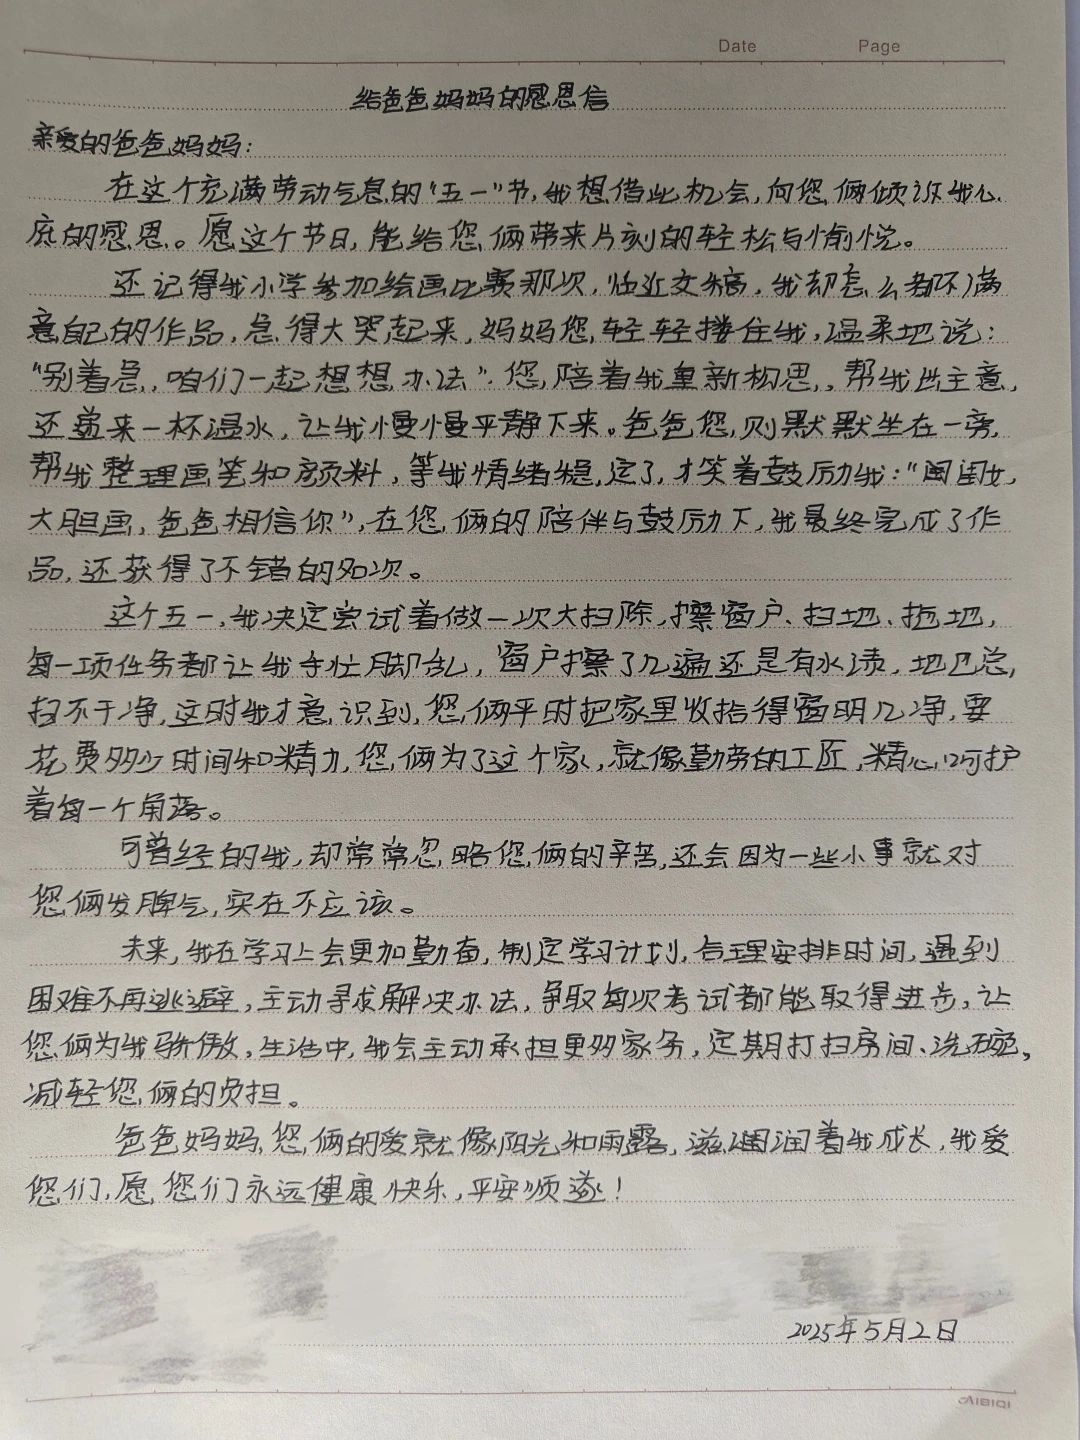 Date Page
给爸爸妈妈的感恩信
亲爱的爸爸妈妈：
在这个充满劳动气息的“五一”节，我想借此机会，向您俩倾诉我心
底的感恩。愿这个节日，能给您俩带来片刻的轻松与愉悦。
还记得我小学参加绘画比赛那次，临近交稿，我却怎么都不满
意自己的作品，急得大哭起来，妈妈您，轻轻搂住我，温柔地说：
“别着急，咱们一起想想办法”。您，陪着我重新构思，帮我出主意，
还端来一杯温水，让我慢慢平静下来。爸爸您，则默默坐在一旁，
帮我整理画笔和颜料，等我情绪稳定了，才笑着鼓励我：“闺闺女，
大胆画，爸爸相信你”，在您俩的陪伴与鼓励下，我最终完成了作
品，还获得了不错的名次。
这个五一，我决定尝试着做一次大扫除，擦窗户、扫地、拖地，
每一项任务都让我手忙脚乱，窗户擦了几遍还是有水渍，地上总，
扫不干净，这时我才意识到，您俩平时把家里收拾得窗明几净，要
花费多少时间和精力，您俩为了这个家，就像勤劳的工匠，精心呵护
着每一个角落。
可曾经的我，却常常忽略您俩的辛苦，还会因为一些小事就对
您俩发脾气，实在不应该。
未来，我在学习上会更加勤奋，制定学习计划，合理安排时间，遇到
困难不再逃避，主动寻求解决办法，争取每次考试都能取得进步，让
您俩为我骄傲，生活中，我会主动承担更多家务，定期打扫房间、洗碗，
减轻您俩的负担。
爸爸妈妈，您俩的爱就像阳光和雨露，滋润着我成长，我爱
您们，愿您们永远健康快乐，平安顺遂！
2025年5月2日
AIBIQI